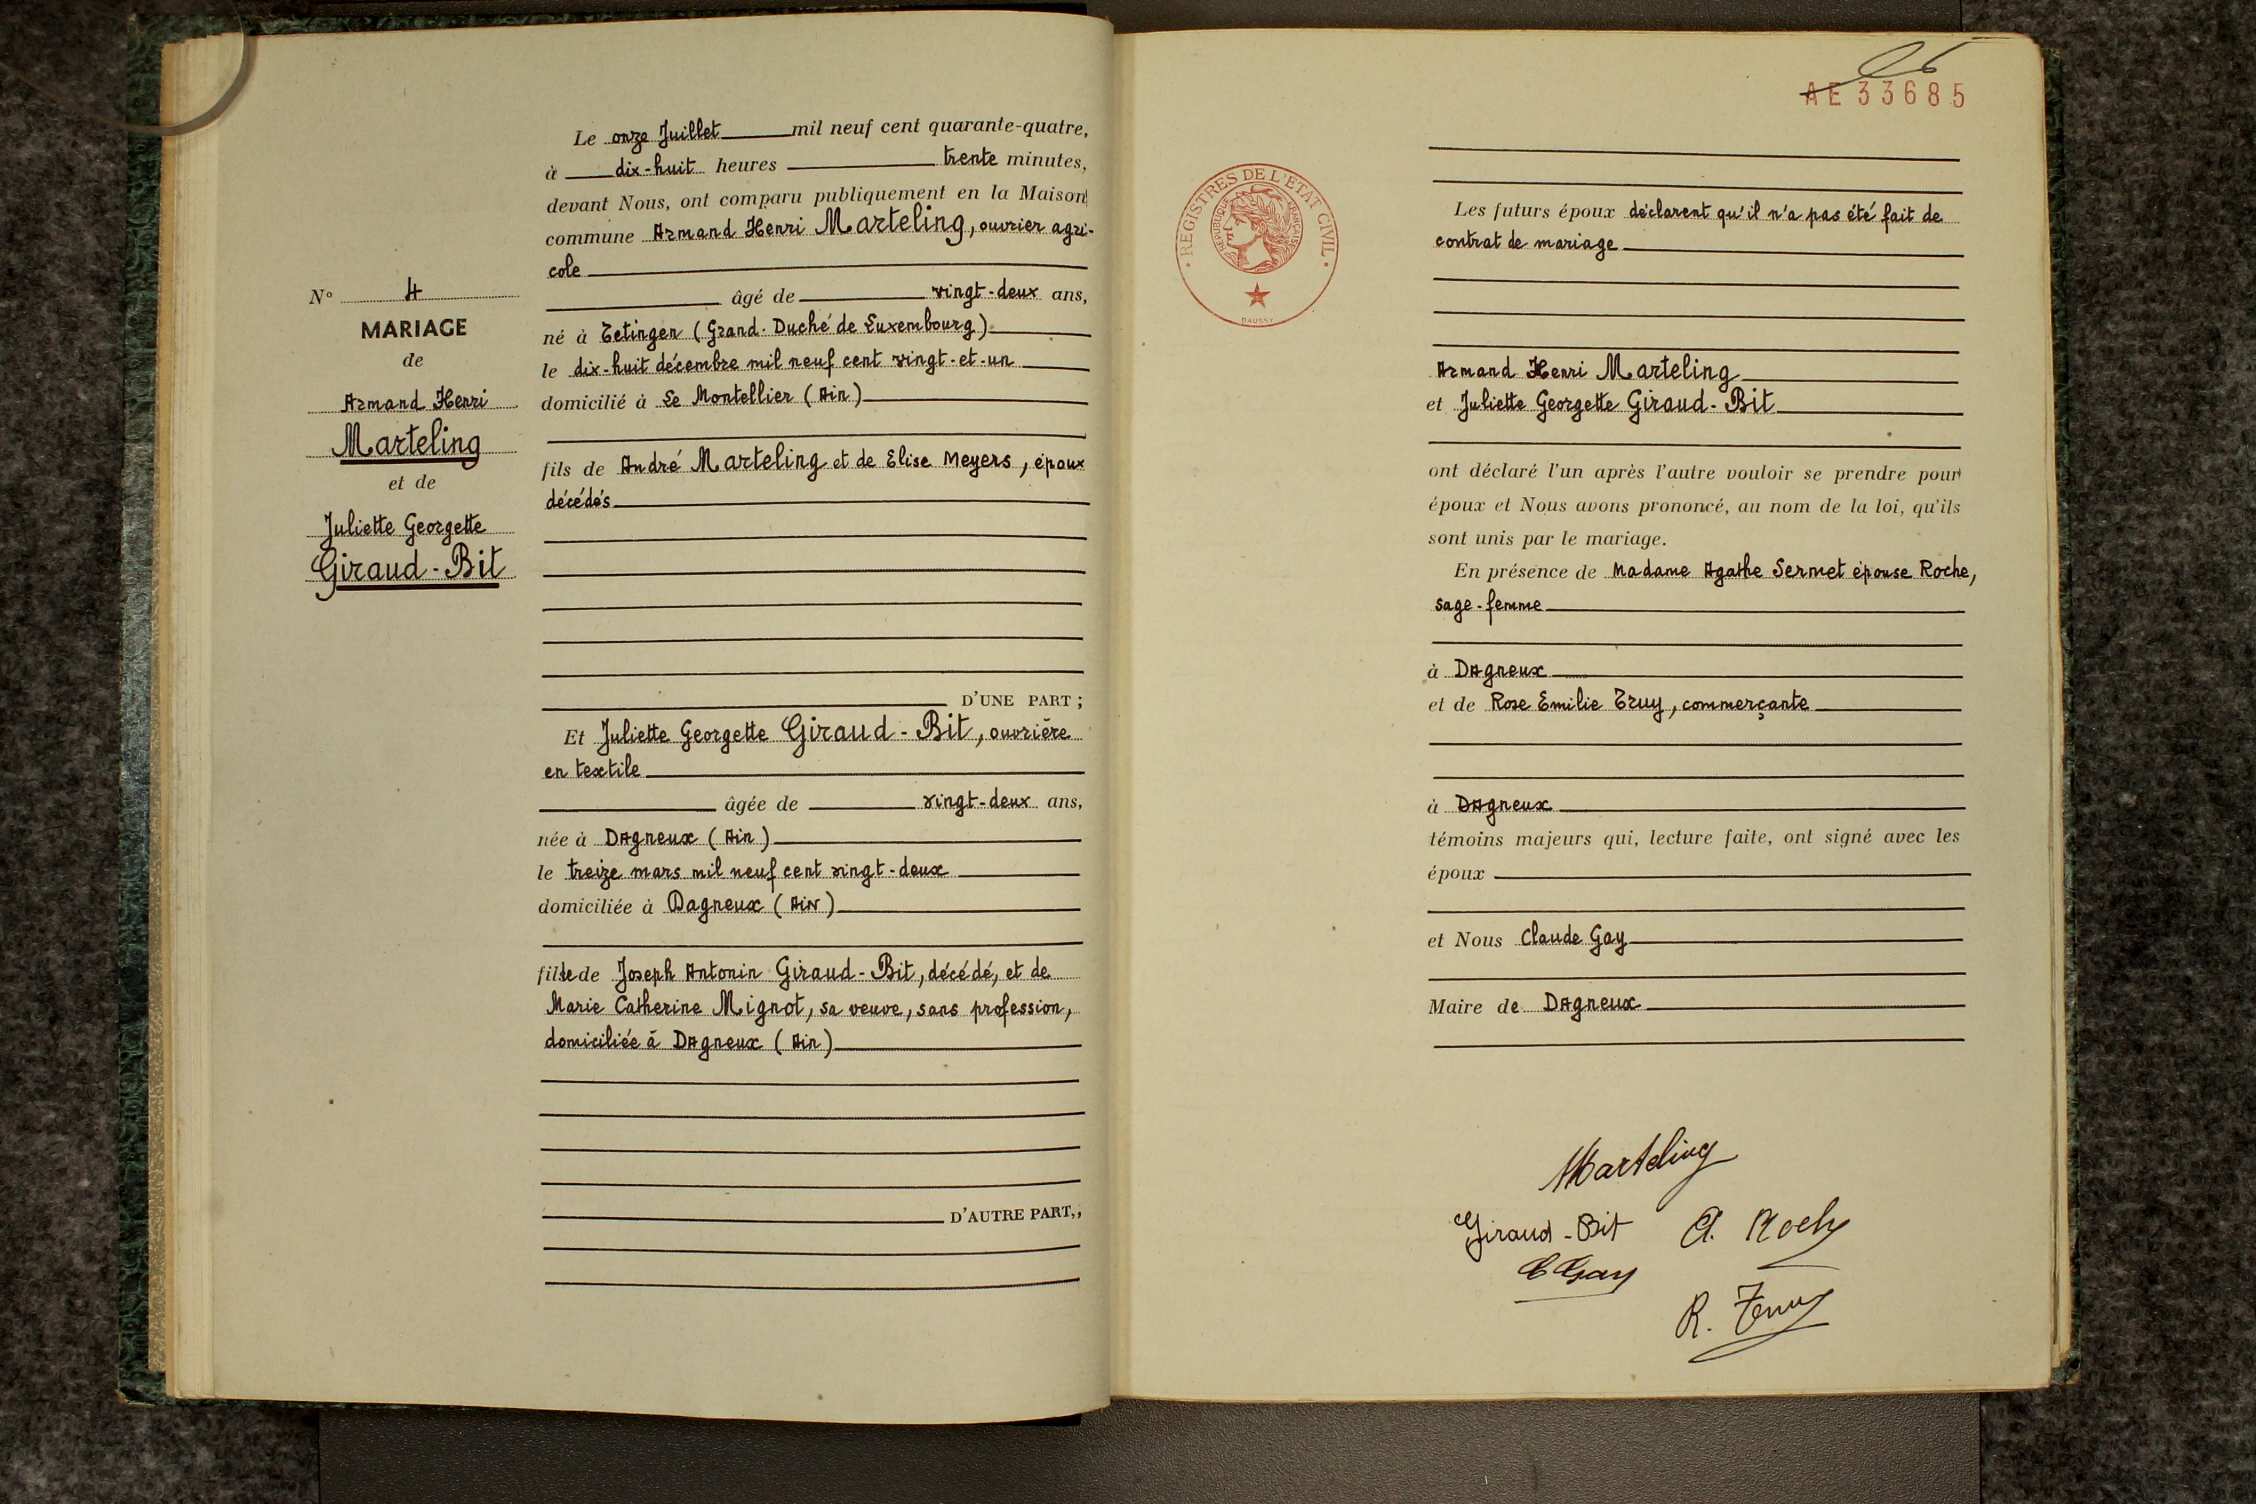 N° 4
MARIAGE
de
Armand Henri
Marteling
et de
Juliette Georgette
Giraud-Bit
Le onze Juillet mil neuf cent quarante-quatre,
à dix-huit heures trente minutes,
devant Nous, ont comparu publiquement en la Maison
commune Armand Henri Marteling, ouvrier agri-
cole
âgé de vingt-deux ans,
né à Tetingen (Grand-Duché de Luxembourg)
le dix-huit décembre mil neuf cent vingt-et-un
domicilié à Le Montellier (Ain)
fils de André Marteling et de Elise Meyers, époux
décédés
D'UNE PART ;
Et Juliette Georgette Giraud-Bit, ouvrière
en textile
âgée de vingt-deux ans,
née à Dagneux (Ain)
le treize mars mil neuf cent vingt-deux
domiciliée à Dagneux (Ain)
fille de Joseph Antonin Giraud-Bit, décédé, et de
Marie Catherine Mignot, sa veuve, sans profession,
domiciliée à Dagneux (Ain)
D'AUTRE PART,,
AE33685
REGISTRES DE L'ETAT CIVIL
REPUBLIQUE FRANÇAISE
DAUSSY
Les futurs époux déclarent qu'il n'a pas été fait de
contrat de mariage
Armand Henri Marteling
et Juliette Georgette Giraud-Bit
ont déclaré l'un après l'autre vouloir se prendre pour
époux et Nous avons prononcé, au nom de la loi, qu'ils
sont unis par le mariage.
En présence de Madame Agathe Sermet épouse Roche,
sage-femme
à Dagneux
et de Rose Emilie Truy, commerçante
à Dagneux
témoins majeurs qui, lecture faite, ont signé avec les
époux
et Nous Claude Gay
Maire de Dagneux
Marteling
Giraud-Bit A. Roche
C Gay
R. Truy